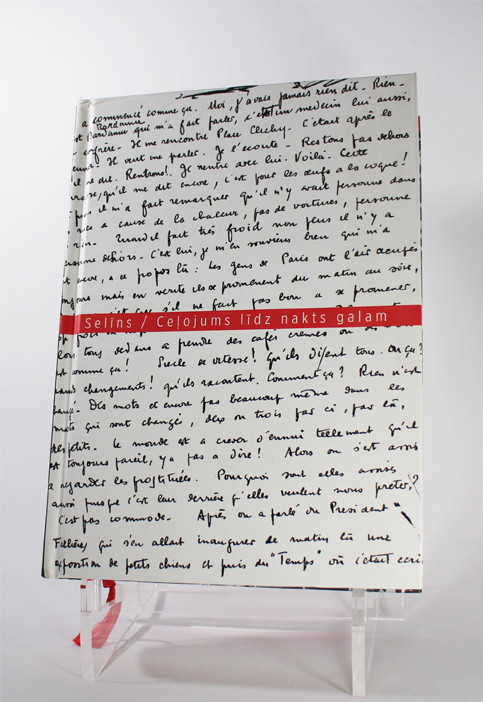 a commencé comme ça. Moi, j'avais jamais rien dit. Rien.
Bardamu
qui m'a fait parler, c'est un médecin lui aussi,
confrère. Il me rencontre Place Clichy. C'était après le
Il veut me parler. Je l'écoute. Restons pas dehors
il me dit. Rentrons!. Je rentre avec lui. Voilà. Cette
qu'il me dit encore, c'est pour les œufs à la coque!
il m'a fait remarquer qu'il n'y avait personne dans
à cause de la chaleur, pas de voitures, personne
rien. Quand il fait très froid non plus il n'y a
personne dehors. C'est lui, je m'en souviens bien qui m'a
à ce propos là: Les gens de Paris ont l'air occupés
mais en vérité ils se promènent du matin au soir,
il ne fait pas bon à se promener,
Selīns / Ceļojums līdz nakts galam
tous dedans à prendre des cafés crèmes ou des
comme ça! Siècle de vitesse! qu'ils disent tous. Où ça?
changements! qu'ils racontent. Comment ça? Rien n'est
changé. Des mots et encore pas beaucoup même dans les
mots qui sont changés, deux ou trois par ci, par là,
des petits. Le monde est à crever d'ennui tellement qu'il
est toujours pareil, y a pas à dire! Alors on s'est assis
à regarder les prostituées. Pourquoi sont elles assises
aussi puisque c'est leur derrière qu'elles veulent nous prêter?
C'est pas commode. Après on a parlé du Président
qui s'en allait inaugurer ce matin là une
exposition de petits chiens et puis du "Temps" où c'était écrit